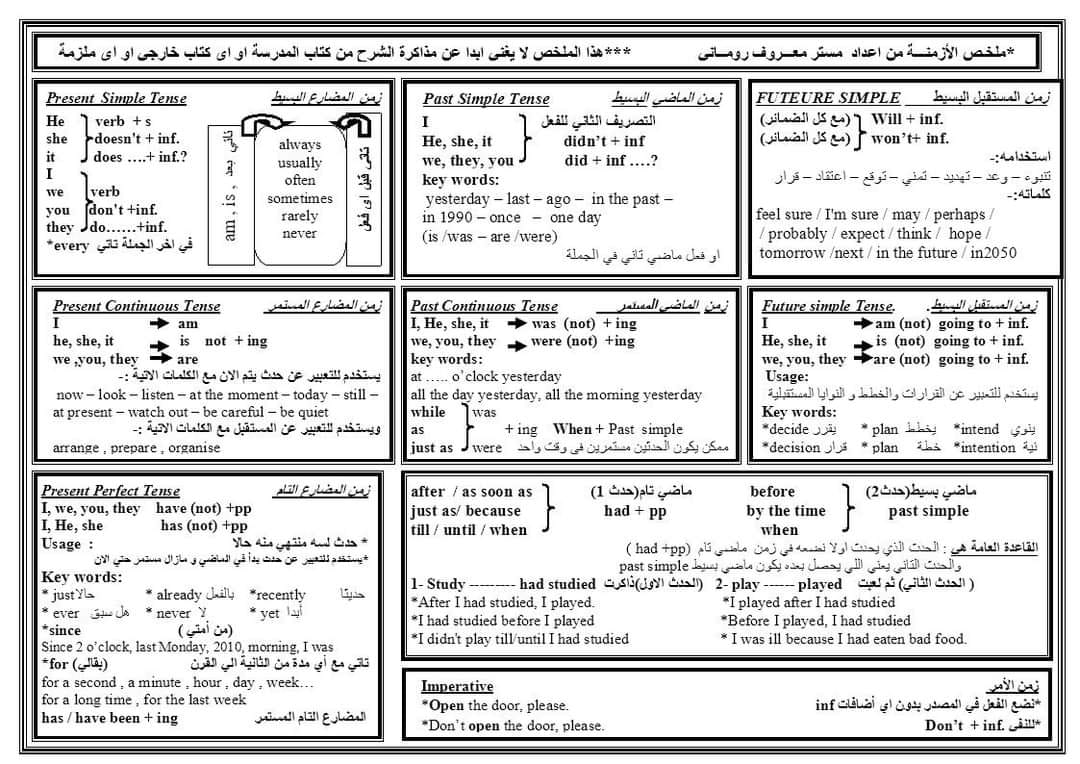 *ملخص الأزمنـــة من اعداد مستر معـــروف رومـــانى ***هذا الملخص لا يغنى ابدا عن مذاكرة الشرح من كتاب المدرسة او اى كتاب خارجى او اى ملزمة
Present Simple Tense زمن المضارع البسيط
He verb + s
she doesn't + inf.
it does ….+ inf.?
I
we verb
you don't +inf.
they do……+inf.
*every في اخر الجملة تاتي
am , is , تاتي بعد
always
usually
often
sometimes
rarely
never
تاتى قبل اى فعل
Past Simple Tense زمن الماضي البسيط
I التصريف الثاني للفعل
He, she, it didn't + inf
we, they, you did + inf ….?
key words:
yesterday – last – ago – in the past –
in 1990 – once – one day
(is /was – are /were)
او فعل ماضي تاني في الجملة
FUTEURE SIMPLE زمن المستقبل البسيط
(مع كل الضمائر) Will + inf.
(مع كل الضمائر) won't+ inf.
استخدامه:-
تنبوء – وعد – تهديد – تمني – توقع – اعتقاد – قرار
كلماته:-
feel sure / I'm sure / may / perhaps /
/ probably / expect / think / hope /
tomorrow /next / in the future / in2050
Present Continuous Tense زمن المضارع المستمر
I am
he, she, it is not + ing
we ,you, they are
يستخدم للتعبير عن حدث يتم الان مع الكلمات الاتية :-
now – look – listen – at the moment – today – still –
at present – watch out – be careful – be quiet
ويستخدم للتعبير عن المستقبل مع الكلمات الاتية :-
arrange , prepare , organise
Past Continuous Tense زمن الماضي المستمر
I, He, she, it was (not) + ing
we, you, they were (not) +ing
key words:
at ….. o'clock yesterday
all the day yesterday, all the morning yesterday
while was
as + ing When + Past simple
just as were ممكن يكون الحدثين مستمرين في وقت واحد
Future simple Tense. زمن المستقبل البسيط.
I am (not) going to + inf.
He, she, it is (not) going to + inf.
we, you, they are (not) going to + inf.
Usage:
يستخدم للتعبير عن القرارات والخطط و النوايا المستقبلية
Key words:
*decide يقرر * plan يخطط *intend ينوي
*decision قرار * plan خطة *intention نية
Present Perfect Tense زمن المضارع التام
I, we, you, they have (not) +pp
I, He, she has (not) +pp
Usage : * حدث لسه منتهي منه حالا
*يستخدم للتعبير عن حدث بدأ في الماضي و مازال مستمر حتي الان
Key words:
* just حالا * already بالفعل *recently حديثا
* ever هل سبق * never لا * yet أبدا
*since (من أمتي )
Since 2 o'clock, last Monday, 2010, morning, I was
*for (بقالي) تاتي مع أي مدة من الثانية الي القرن
for a second , a minute , hour , day , week…
for a long time , for the last week
has / have been + ing المضارع التام المستمر
after / as soon as ماضي تام(حدث 1) before ماضي بسيط(حدث2)
just as/ because had + pp by the time past simple
till / until / when when
القاعدة العامة هي : الحدث الذي يحدث اولا نضعه في زمن ماضي تام ( had +pp )
والحدث التاني يعني اللي يحصل بعده يكون ماضي بسيط past simple
1- Study --------- had studied (الحدث الاول)ذاكرت 2- play ------ played ( الحدث الثاني) ثم لعبت
*After I had studied, I played. *I played after I had studied
*I had studied before I played *Before I played, I had studied
*I didn't play till/until I had studied * I was ill because I had eaten bad food.
Imperative زمن الأمر
*Open the door, please. *نضع الفعل في المصدر بدون اي أضافات inf
*Don't open the door, please. *للنفى Don't + inf.